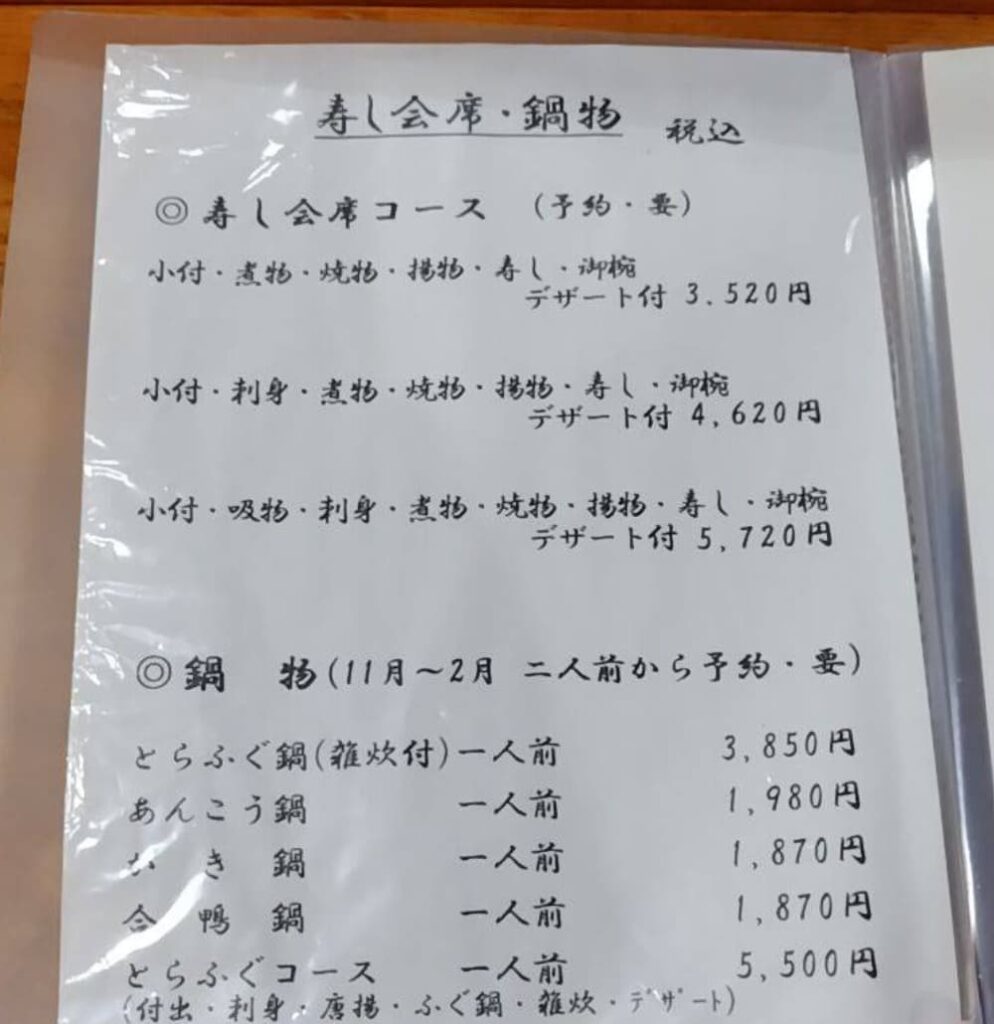 寿し会席・鍋物 税込
◎ 寿し会席コース (予約・要)
小付・煮物・焼物・揚物・寿し・御椀
デザート付 3,520円
小付・刺身・煮物・焼物・揚物・寿し・御椀
デザート付 4,620円
小付・吸物・刺身・煮物・焼物・揚物・寿し・御椀
デザート付 5,720円
◎ 鍋 物(11月~2月 二人前から予約・要)
とらふぐ鍋(雑炊付)一人前 3,850円
あんこう鍋 一人前 1,980円
かき鍋 一人前 1,870円
合鴨鍋 一人前 1,870円
とらふぐコース 一人前 5,500円
(付出・刺身・唐揚・ふぐ鍋・雑炊・デザート)